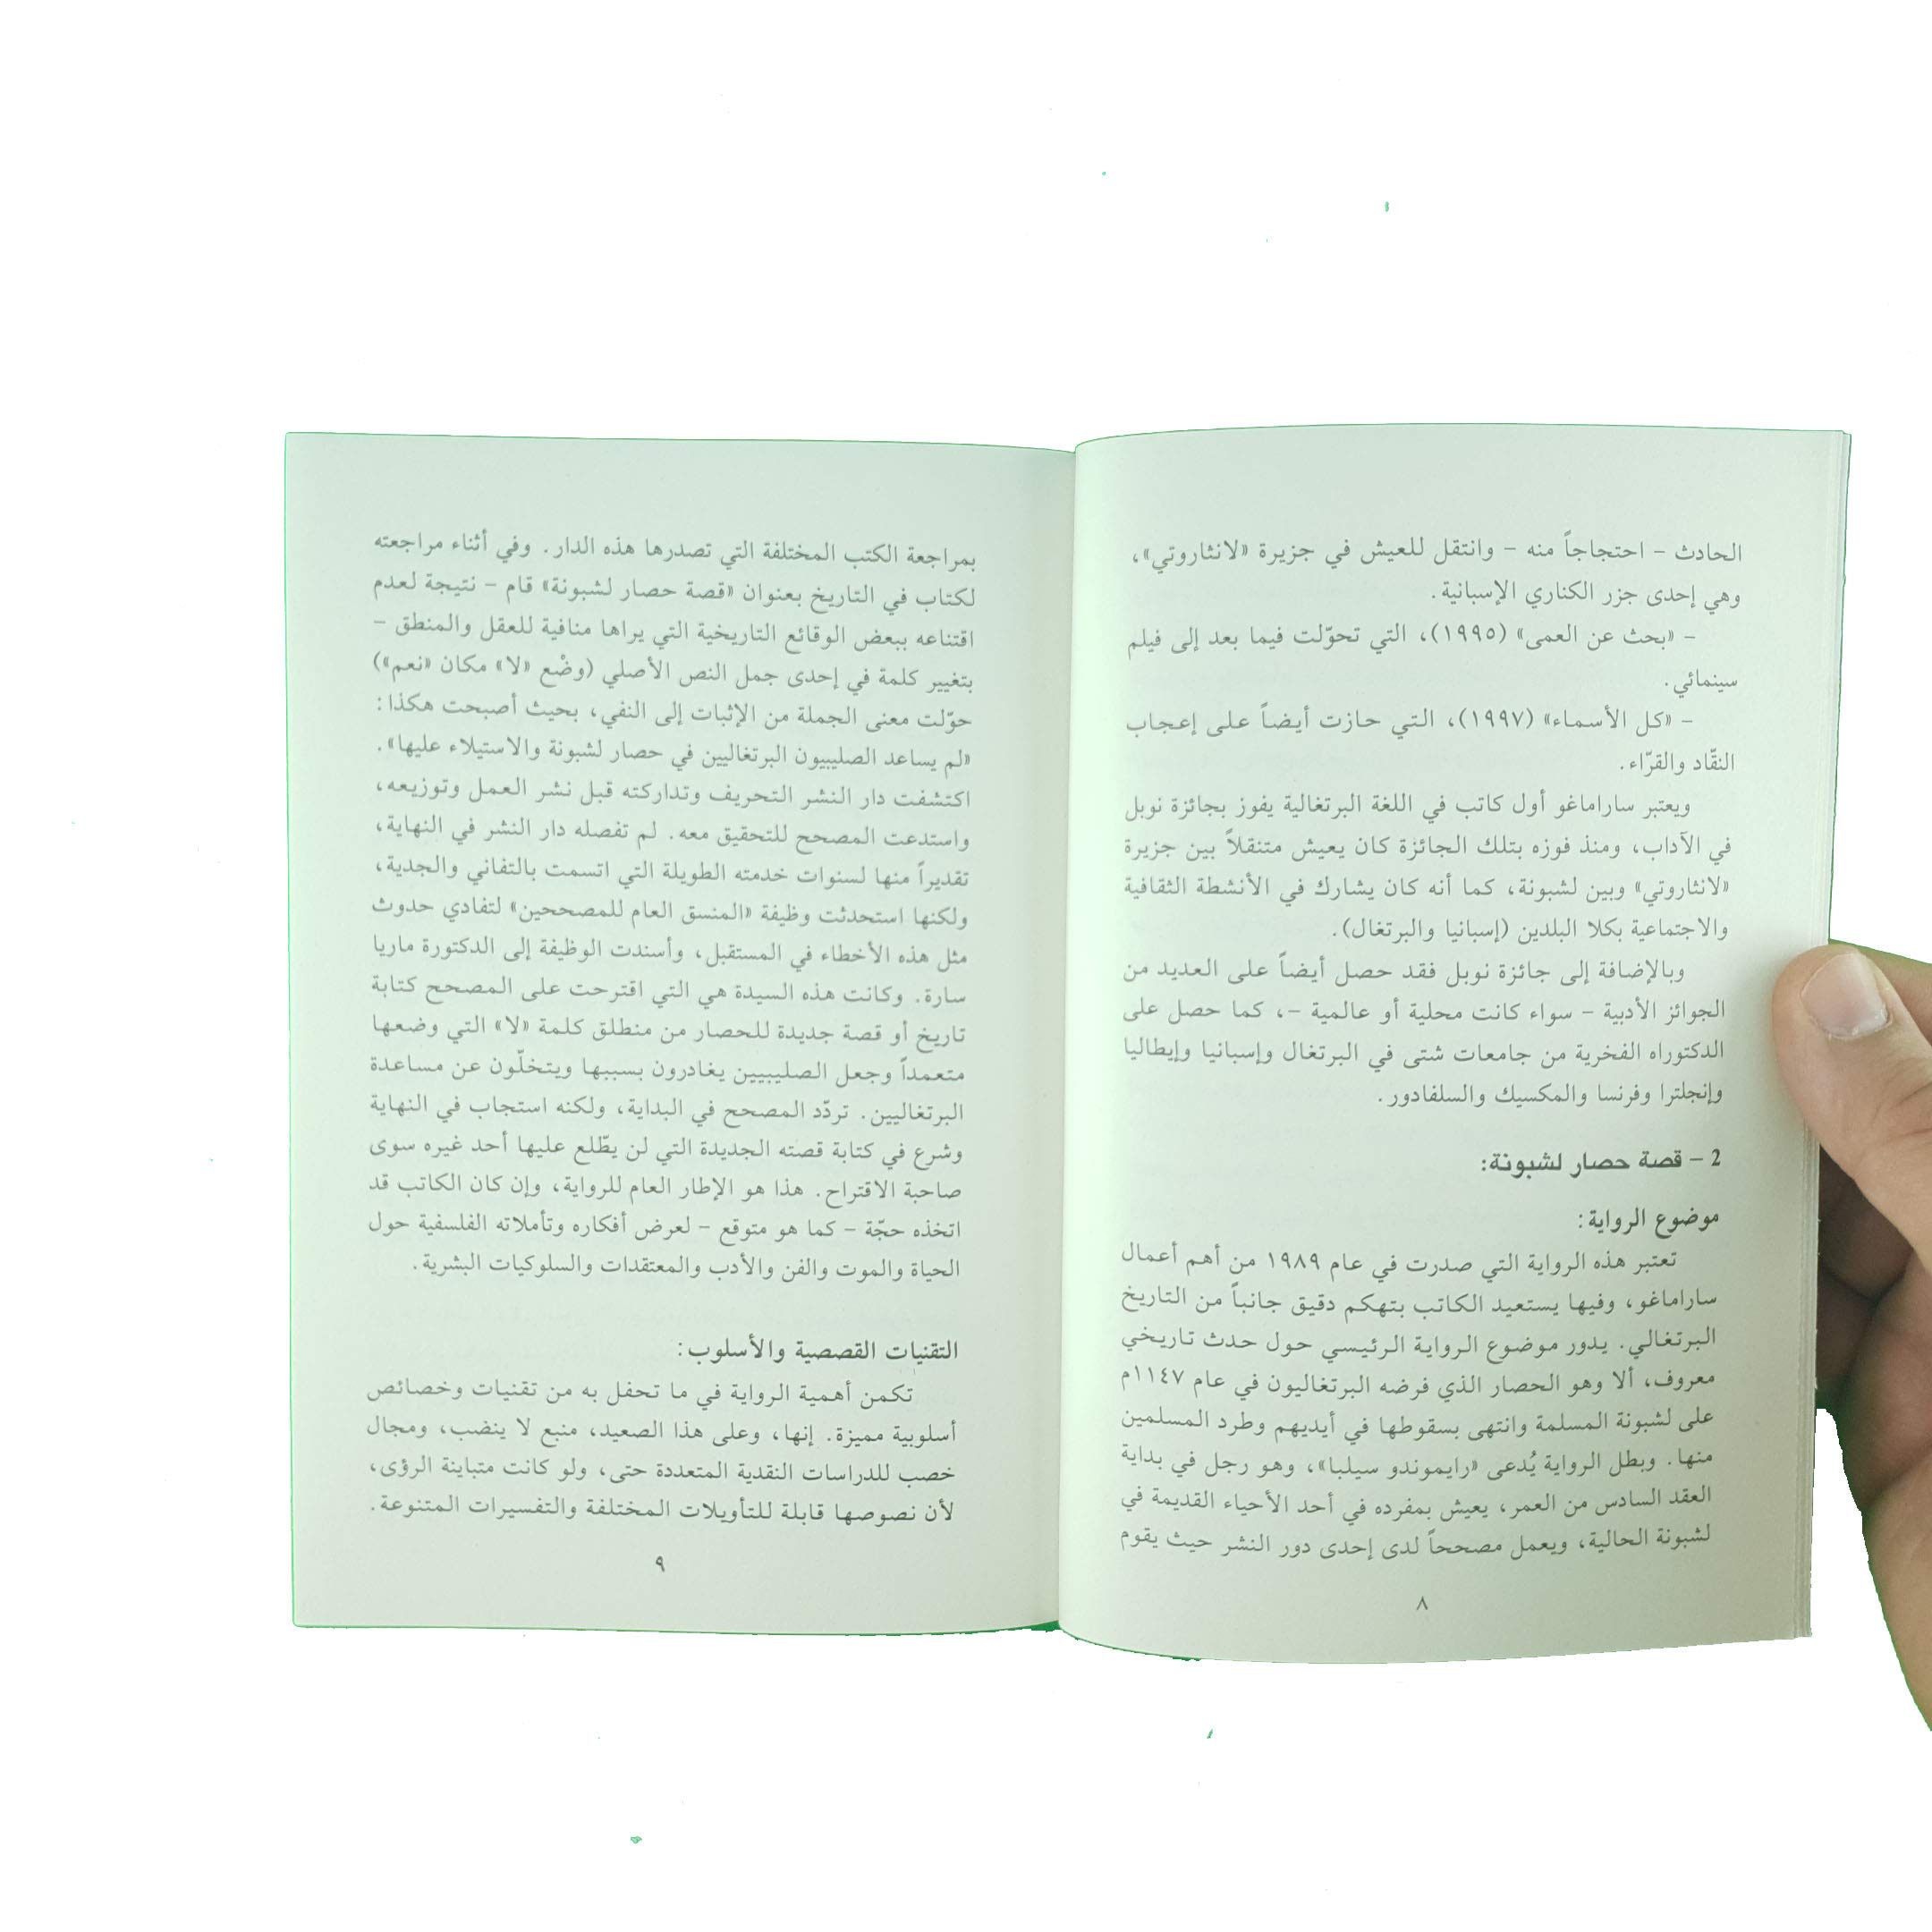 الحادث - احتجاجاً منه - وانتقل للعيش في جزيرة «لانثاروتي»،
وهي إحدى جزر الكناري الإسبانية.
- «بحث عن العمى» (١٩٩٥)، التي تحوّلت فيما بعد إلى فيلم
سينمائي.
- «كل الأسماء» (١٩٩٧)، التي حازت أيضاً على إعجاب
النقّاد والقرّاء.
ويعتبر ساراماغو أول كاتب في اللغة البرتغالية يفوز بجائزة نوبل
في الآداب، ومنذ فوزه بتلك الجائزة كان يعيش متنقلاً بين جزيرة
«لانثاروتي» وبين لشبونة، كما أنه كان يشارك في الأنشطة الثقافية
والاجتماعية بكلا البلدين (إسبانيا والبرتغال).
وبالإضافة إلى جائزة نوبل فقد حصل أيضاً على العديد من
الجوائز الأدبية - سواء كانت محلية أو عالمية -، كما حصل على
الدكتوراه الفخرية من جامعات شتى في البرتغال وإسبانيا وإيطاليا
وإنجلترا وفرنسا والمكسيك والسلفادور.
2 - قصة حصار لشبونة:
موضوع الرواية:
تعتبر هذه الرواية التي صدرت في عام ١٩٨٩ من أهم أعمال
ساراماغو، وفيها يستعيد الكاتب بتهكم دقيق جانباً من التاريخ
البرتغالي. يدور موضوع الرواية الرئيسي حول حدث تاريخي
معروف، ألا وهو الحصار الذي فرضه البرتغاليون في عام ١١٤٧م
على لشبونة المسلمة وانتهى بسقوطها في أيديهم وطرد المسلمين
منها. وبطل الرواية يُدعى «رايموندو سيلبا»، وهو رجل في بداية
العقد السادس من العمر، يعيش بمفرده في أحد الأحياء القديمة في
لشبونة الحالية، ويعمل مصححاً لدى إحدى دور النشر حيث يقوم
٨
بمراجعة الكتب المختلفة التي تصدرها هذه الدار. وفي أثناء مراجعته
لكتاب في التاريخ بعنوان «قصة حصار لشبونة» قام - نتيجة لعدم
اقتناعه ببعض الوقائع التاريخية التي يراها منافية للعقل والمنطق -
بتغيير كلمة في إحدى جمل النص الأصلي (وضْع «لا» مكان «نعم»)
حوّلت معنى الجملة من الإثبات إلى النفي، بحيث أصبحت هكذا:
«لم يساعد الصليبيون البرتغاليين في حصار لشبونة والاستيلاء عليها».
اكتشفت دار النشر التحريف وتداركته قبل نشر العمل وتوزيعه،
واستدعت المصحح للتحقيق معه. لم تفصله دار النشر في النهاية،
تقديراً منها لسنوات خدمته الطويلة التي اتسمت بالتفاني والجدية،
ولكنها استحدثت وظيفة «المنسق العام للمصححين» لتفادي حدوث
مثل هذه الأخطاء في المستقبل، وأسندت الوظيفة إلى الدكتورة ماريا
سارة. وكانت هذه السيدة هي التي اقترحت على المصحح كتابة
تاريخ أو قصة جديدة للحصار من منطلق كلمة «لا» التي وضعها
متعمداً وجعل الصليبيين يغادرون بسببها ويتخلّون عن مساعدة
البرتغاليين. تردّد المصحح في البداية، ولكنه استجاب في النهاية
وشرع في كتابة قصته الجديدة التي لن يطّلع عليها أحد غيره سوى
صاحبة الاقتراح. هذا هو الإطار العام للرواية، وإن كان الكاتب قد
اتخذه حجّة - كما هو متوقع - لعرض أفكاره وتأملاته الفلسفية حول
الحياة والموت والفن والأدب والمعتقدات والسلوكيات البشرية.
التقنيات القصصية والأسلوب:
تكمن أهمية الرواية في ما تحفل به من تقنيات وخصائص
أسلوبية مميزة. إنها، وعلى هذا الصعيد، منبع لا ينضب، ومجال
خصب للدراسات النقدية المتعددة حتى، ولو كانت متباينة الرؤى،
لأن نصوصها قابلة للتأويلات المختلفة والتفسيرات المتنوعة.
٩